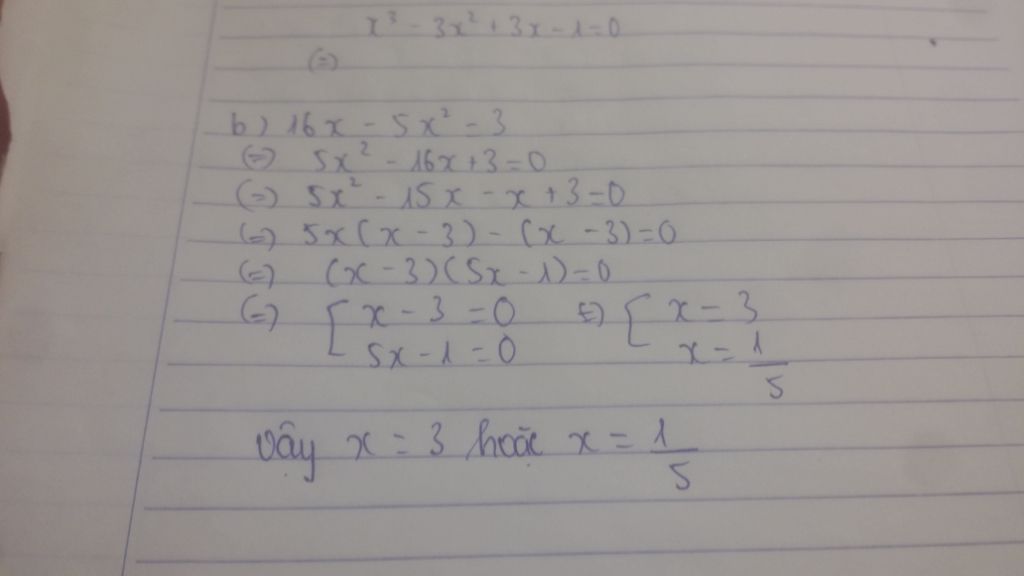 x³ - 3x² + 3x - 1 = 0
(=)
b) 16x - 5x² - 3
(=) 5x² - 16x + 3 = 0
(=) 5x² - 15x - x + 3 = 0
(=) 5x(x - 3) - (x - 3) = 0
(=) (x - 3)(5x - 1) = 0
(=) [ x - 3 = 0 (=) [ x = 3
5x - 1 = 0 x = 1/5
Vậy x = 3 hoặc x = 1/5